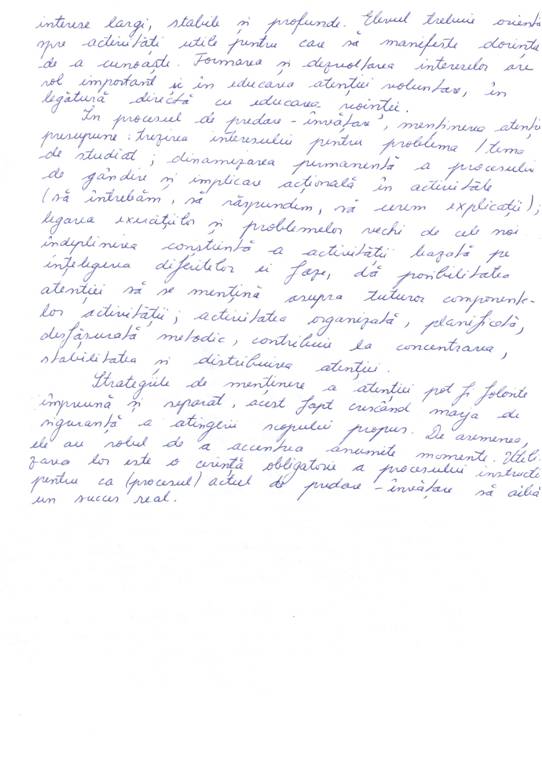 interese largi, stabile și profunde. Elevul trebuie orienta
spre activități utile pentru care să manifeste dorința
de a cunoaște. Formarea și dezvoltarea intereselor are
rol important și în educarea atenției voluntare, în
legătură directă cu educarea voinței.
În procesul de predare - învățare, menținerea atenți
presupune: trezirea interesului pentru problema / tema
de studiat; dinamizarea permanentă a procesului
de gândire și implicare acțională în activitate
(să întrebăm, să răspundem, să cerem explicații);
legarea exercițiilor și problemelor vechi de cele noi
îndeplinirea conștientă a activității bazată pe
înțelegerea diferitelor ei faze, dă posibilitatea
atenției să se mențină asupra tuturor componente-
lor activității; activitatea organizată, planificată,
desfășurată metodic, contribuie la concentrarea,
stabilitatea și distribuirea atenției.
Strategiile de menținere a atenției pot fi folosite
împreună și separat, acest fapt crescând marja de
siguranță a atingerii scopului propus. De asemenea,
ele au rolul de a accentua anumite momente. Utili-
zarea lor este o cerință obligatorie a procesului instructi
pentru ca (procesul) actul de predare - învățare să aibă
un succes real.